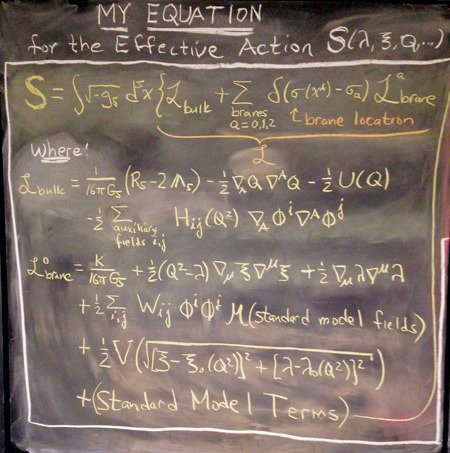 MY EQUATION
for the Effective Action S(λ, ξ, Q, ...)
S = ∫√-g₅ d⁵x { ℒ_bulk + Σ_{branes a=0,1,2} δ(σ(xᴬ) - σₐ) ℒᵃ_brane
brane location
ℒ
Where:
ℒ_bulk = 1/(16πG₅) (R₅ - 2Λ₅) - ½ ∇_A Q ∇ᴬ Q - ½ U(Q)
- ½ Σ_{auxiliary fields i,j} H_ij(Q²) ∇_A Φⁱ ∇ᴬ Φʲ
ℒᵃ_brane = K/(16πG₅) + ½(Q² - λ) ∇_μ ξ ∇^μ ξ + ½ ∇_μ λ ∇^μ λ
+ ½ Σ_{i,j} W_ij Φⁱ Φⁱ M(standard model fields)
+ ½ V(√([ξ - ξ₀(Q²)]² + [λ - λ₀(Q²)]²))
+ (Standard Model Terms)